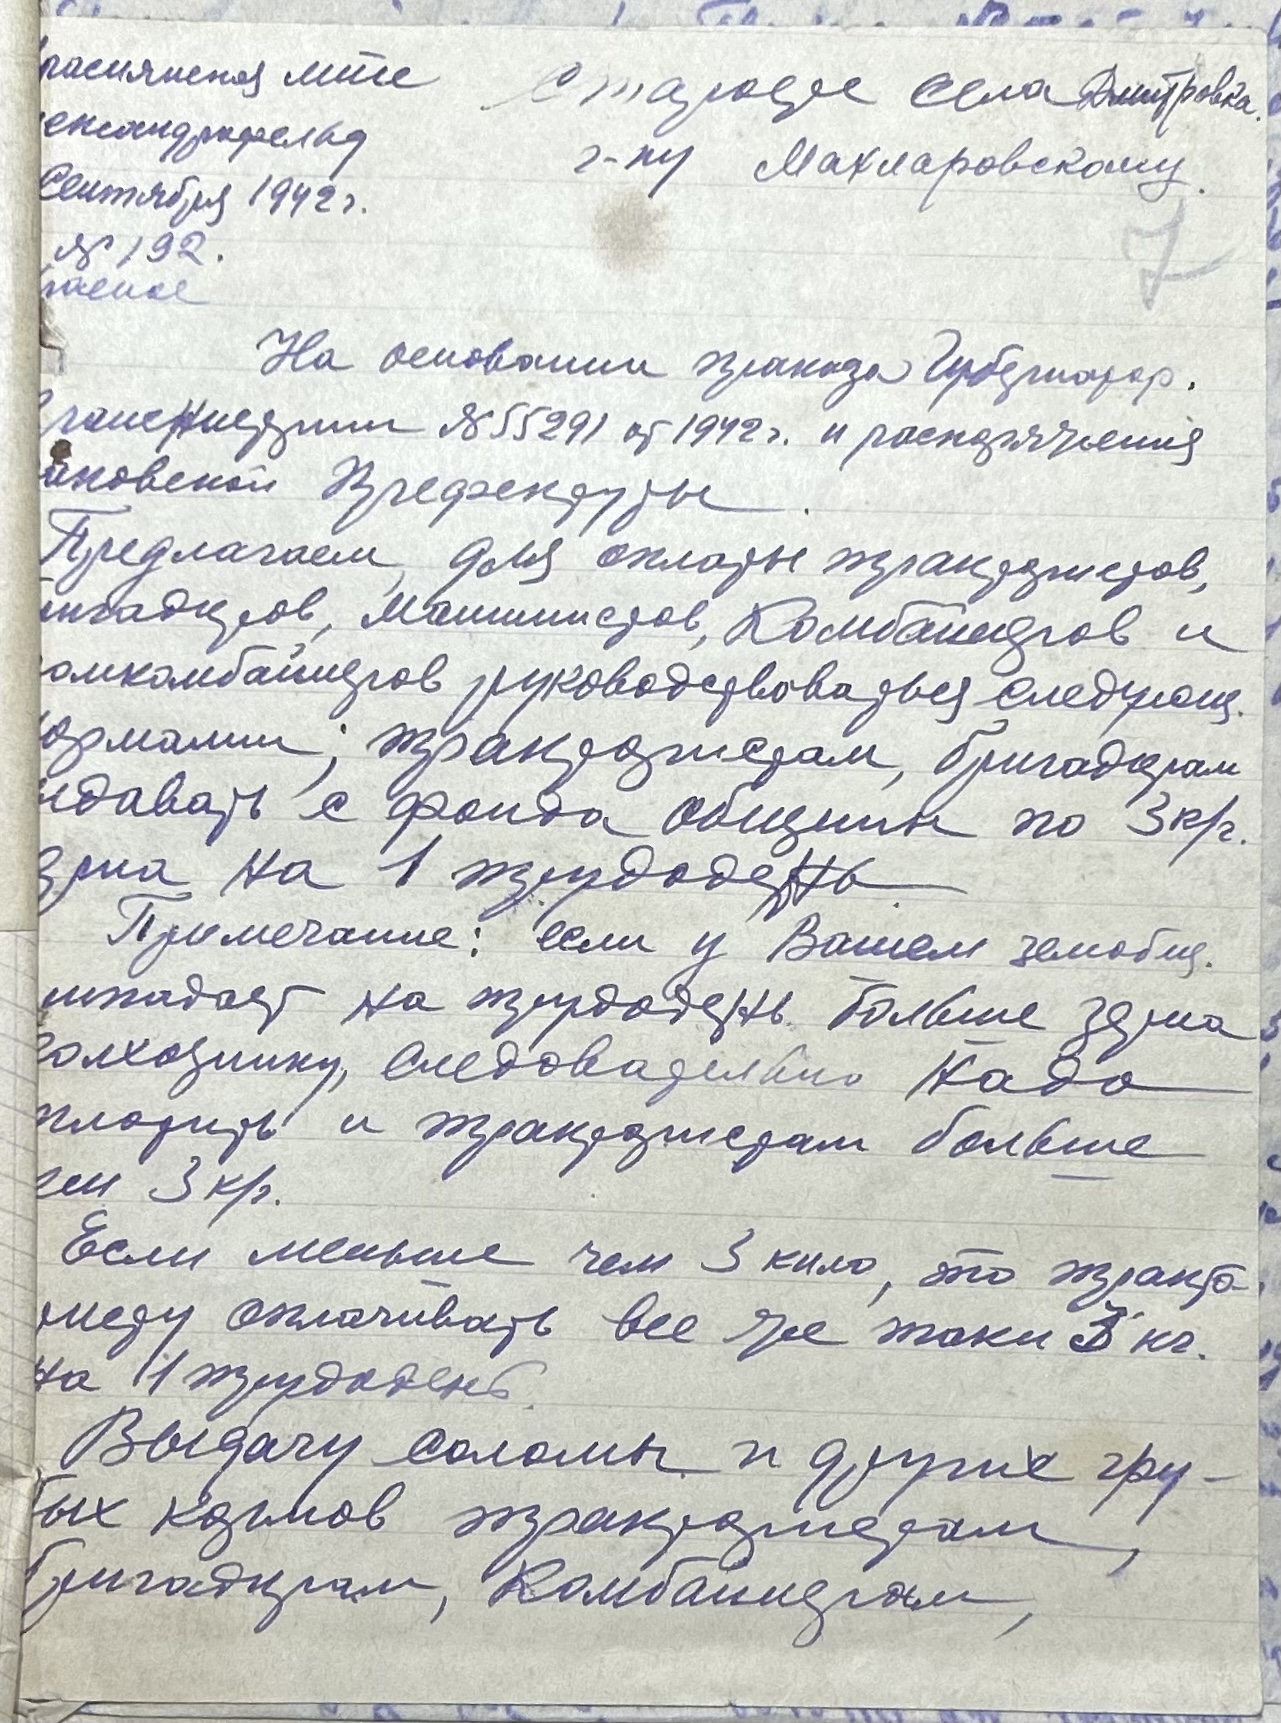 Старосте села Дмитровка.
г-ну Махларовскому.
сентября 1942 г.
№ 192.
7
На основании приказа Губернатор.
№ 55291 от 1942 г. и распоряжения
Префектуры.
Предлагаем, для оплаты трактористов,
машинистов, Комбайнеров и
руководствоваться следующ.
трактористам, бригадирам
с фонда общины по 3 кгр.
на 1 трудодень
Примечание: если у Вашем земобщ.
на трудодень больше зерна
следовательно надо
и трактористам больше
3 кгр.
Если меньше чем 3 кило, то тракто-
оплачивать все же таки 3 кг.
на 1 трудодень
Выдачу соломы и других гру-
бых кормов трактористам,
бригадирам, Комбайнерам,